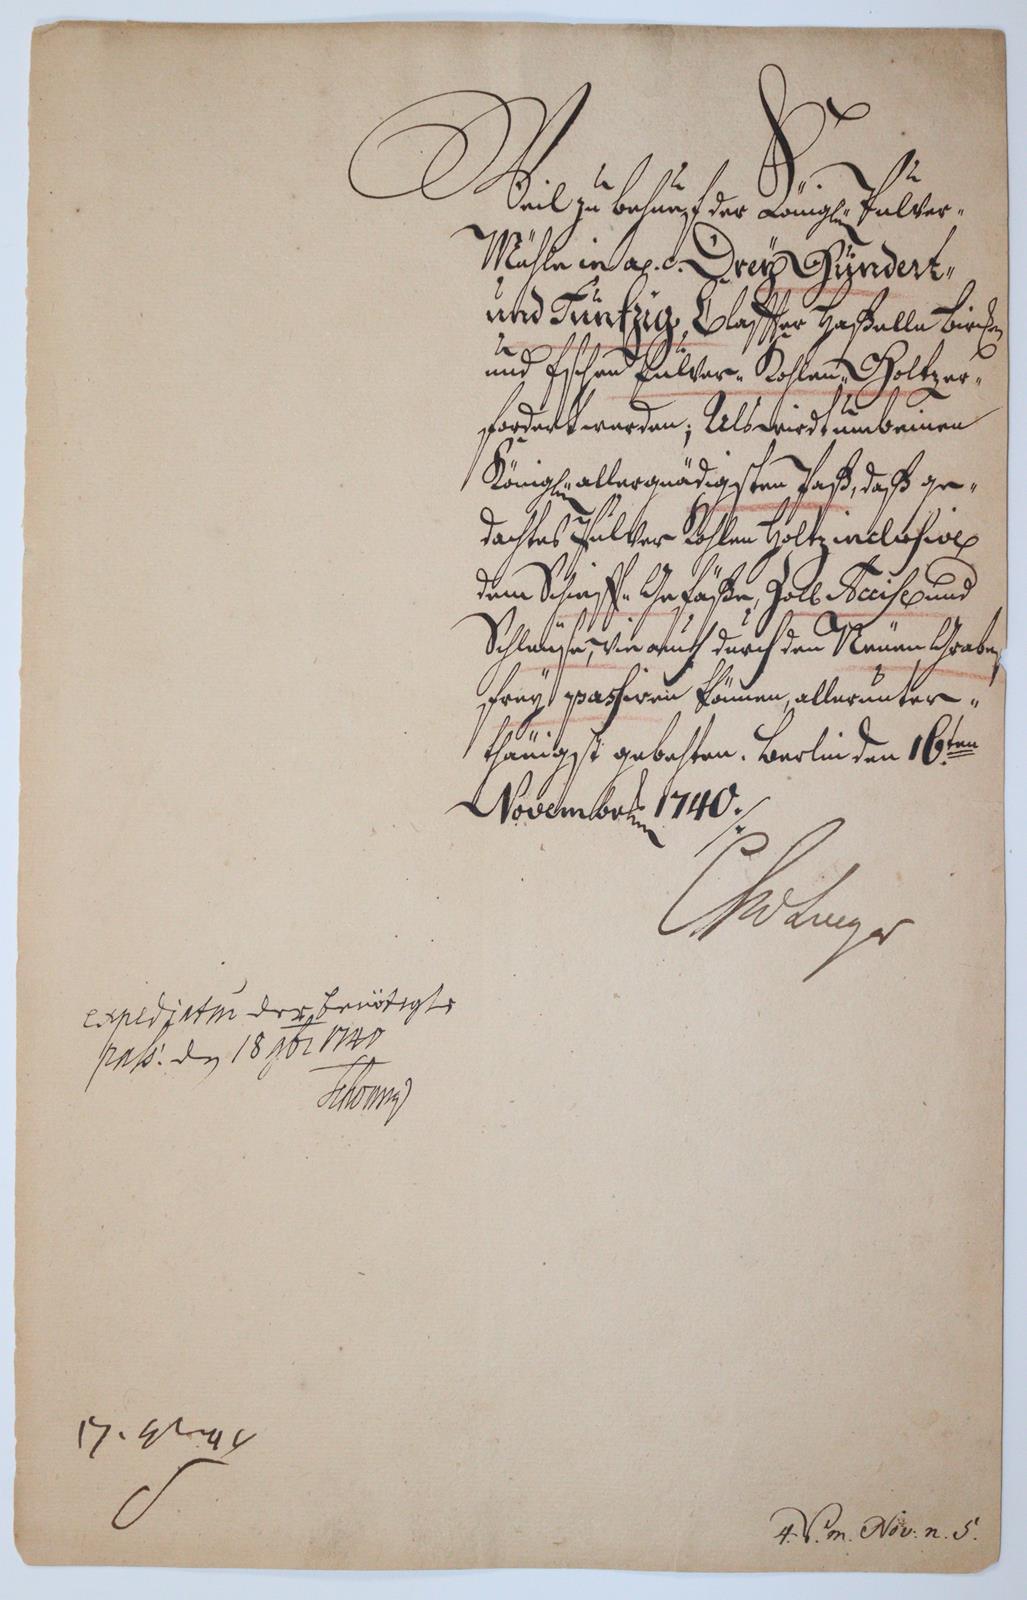 Weil zu behuef der Königl.n Pulver-
Mühle in a.c. Drey Hundert-
und Funfzig, Claffter Haßelle Bircken
und Eschen Pulver- Kohlen- Holtz er-
fordert werden; Als wird umb einen
Königl.n allergnädigsten Paß, daß ge-
dachtes Pulver Kohlen Holtz inclusive
dem Schieff- Gefäße, Zoll Accise und
Schleuse, wie auch durch den Neuen Graben
frey passiren können, allerunter-
thänigst gebehten. Berlin den 16.ten
Novembr: 1740.
expediatur der benötigte
pass. den 18 9br 1740
17.
4. V. m. Nov: n. 5.